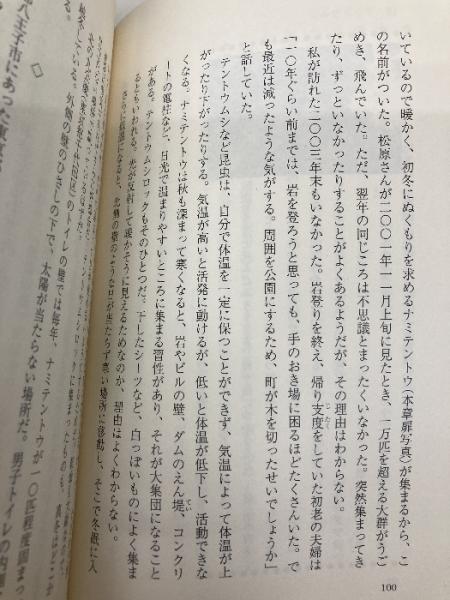 いているので暖かく、初冬にぬくもりを求めるナミテントウ(本章扉写真)が集まるから、こ
の名前がついた。松原さんが二〇〇一年一一月上旬に見たとき、一万匹を超える大群がうご
めき、飛んでいた。ただ、翌年の同じころは不思議とまったくいなかった。突然集まってき
たり、ずっといなかったりすることがよくあるようだが、その理由はわからない。
私が訪れた二〇〇三年末もいなかった。岩登りを終え、帰り支度をしていた初老の夫婦は
じたく
「一〇年ぐらい前までは、岩を登ろうと思っても、手のおき場に困るほどたくさんいた。で
も最近は減ったような気がする。周囲を公園にするため、町が木を切ったせいでしょうか」
と話していた。
テントウムシなど昆虫は、自分で体温を一定に保つことができず、気温によって体温が上
がったり下がったりする。気温が高いと活発に動けるが、低いと体温が低下し、活動できな
くなる。ナミテントウは秋も深まって寒くなると、岩やビルの壁、ダムのえん堤、コンクリ
てい
ートの電柱など、日光で温まりやすいところに集まる習性があり、それが大集団になること
がある。テントウムシロックもそのひとつだ。干したシーツなど、白っぽいものによく集ま
るともいわれる。光が反射して暖かそうに見えるためなのか、理由はよくわからない。
さらに低温になると、北側の壁のような日が当たらず寒い場所に移動し、そこで冬眠に入
のトイレの壁では毎年、ナミテントウが一〇匹程度固まっ
越冬している。外側の壁のひさしの下で、太陽が当たらない場所だ。男子トイレの内側
る。
◇
八王子市にあった東京
100